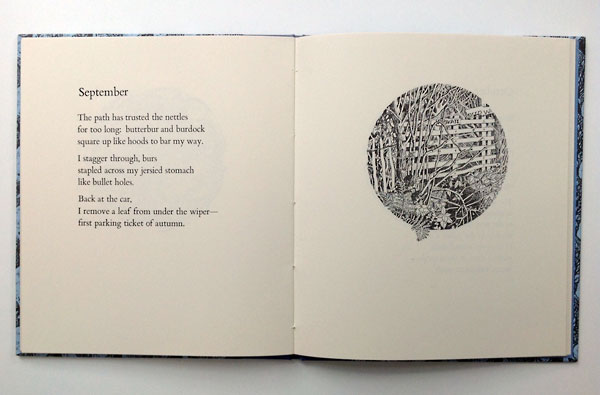 September
The path has trusted the nettles
for too long: butterbur and burdock
square up like hoods to bar my way.
I stagger through, burs
stapled across my jersied stomach
like bullet holes.
Back at the car,
I remove a leaf from under the wiper—
first parking ticket of autumn.